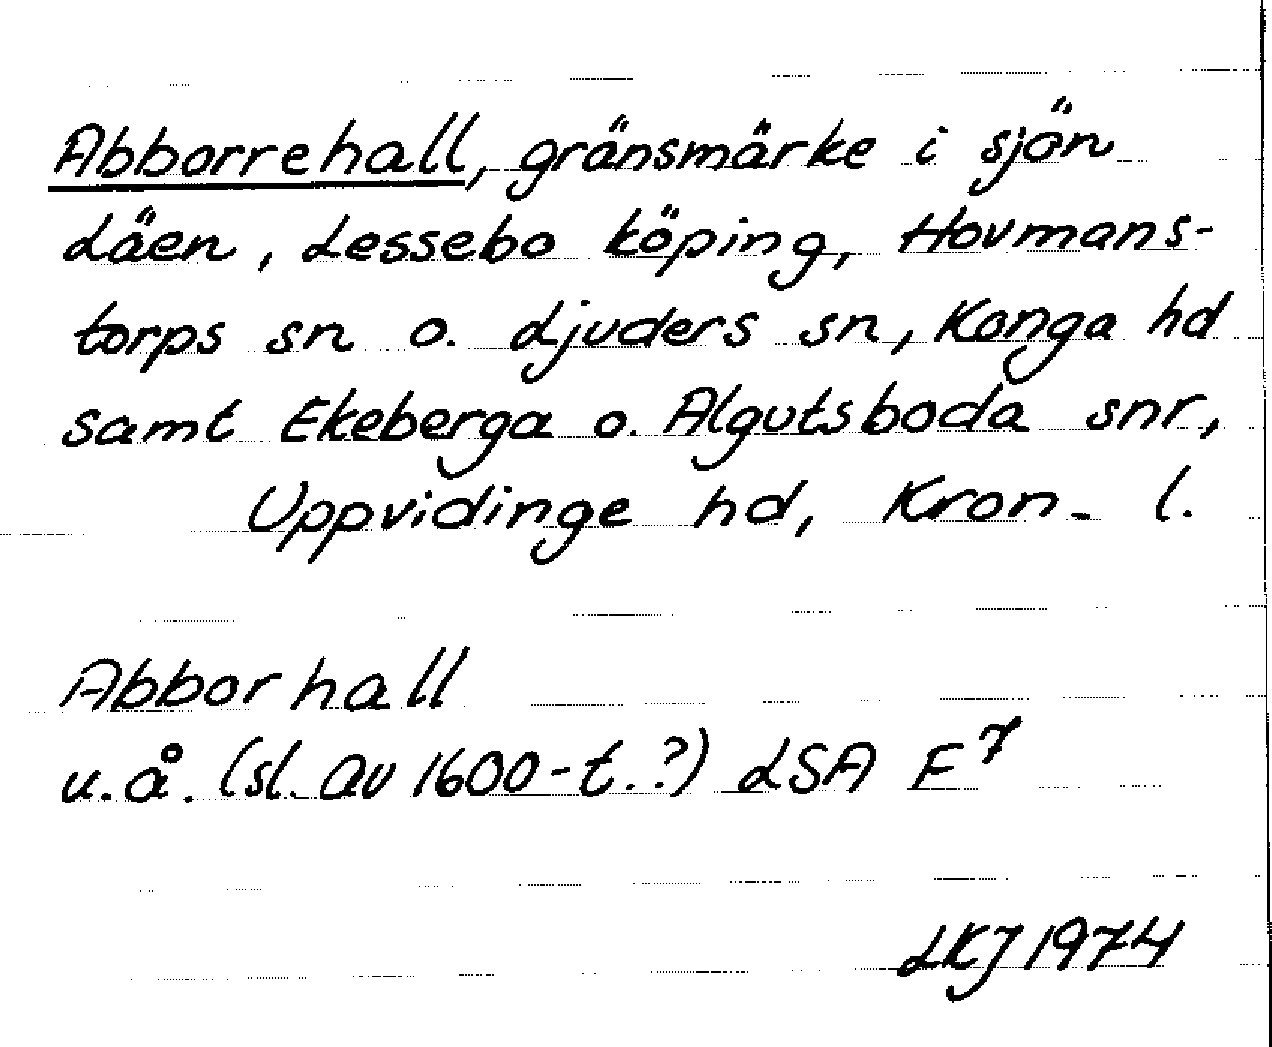 Abborrehall, gränsmärke i sjön
Läen, Lessebo köping, Hovmans-
torps sn o. Ljuders sn, Konga hd
samt Ekeberga o. Algutsboda snr,
Uppvidinge hd, Kron. l.
Abborhall
u.å. (sl. av 1600-t.?) LSA E⁷
LKJ 1974